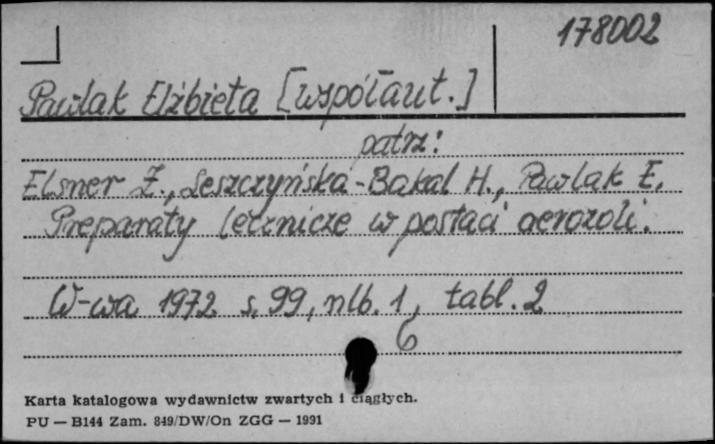 178002
Pawlak Elżbieta [współaut.]
patrz:
Elsner Z., Leszczyńska-Bakal H., Pawlak E.
Preparaty lecznicze w postaci aerozoli.
W-wa 1972 s. 99, nlb. 1, tabl. 2
6
Karta katalogowa wydawnictw zwartych i ciągłych.
PU — B144 Zam. 849/DW/On ZGG — 1991